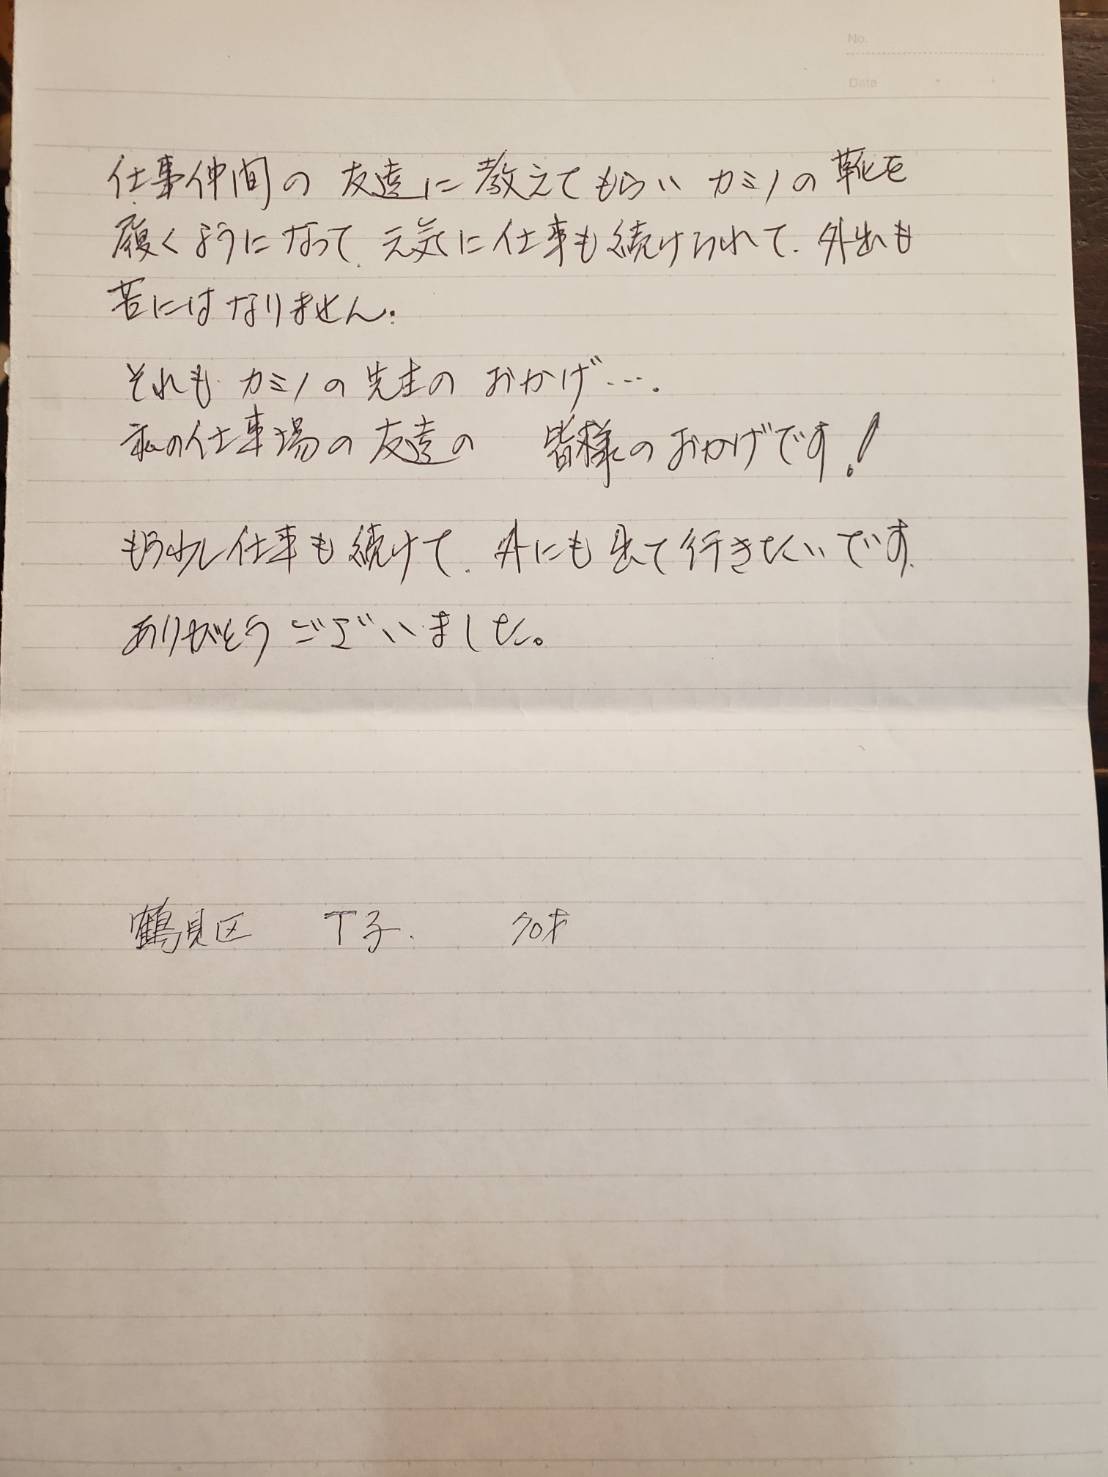 No.
Date
仕事仲間の 友達に教えてもらい カミノの靴を
履くようになって、元気に仕事も続けられて、外出も
苦にはなりません.
それも カミノの先生の おかげ….
私の仕事場の友達の 皆様のおかげです!
もう少し仕事も続けて、外にも出て行きたいです.
ありがとうございました。
鶴見区 T子. 70才